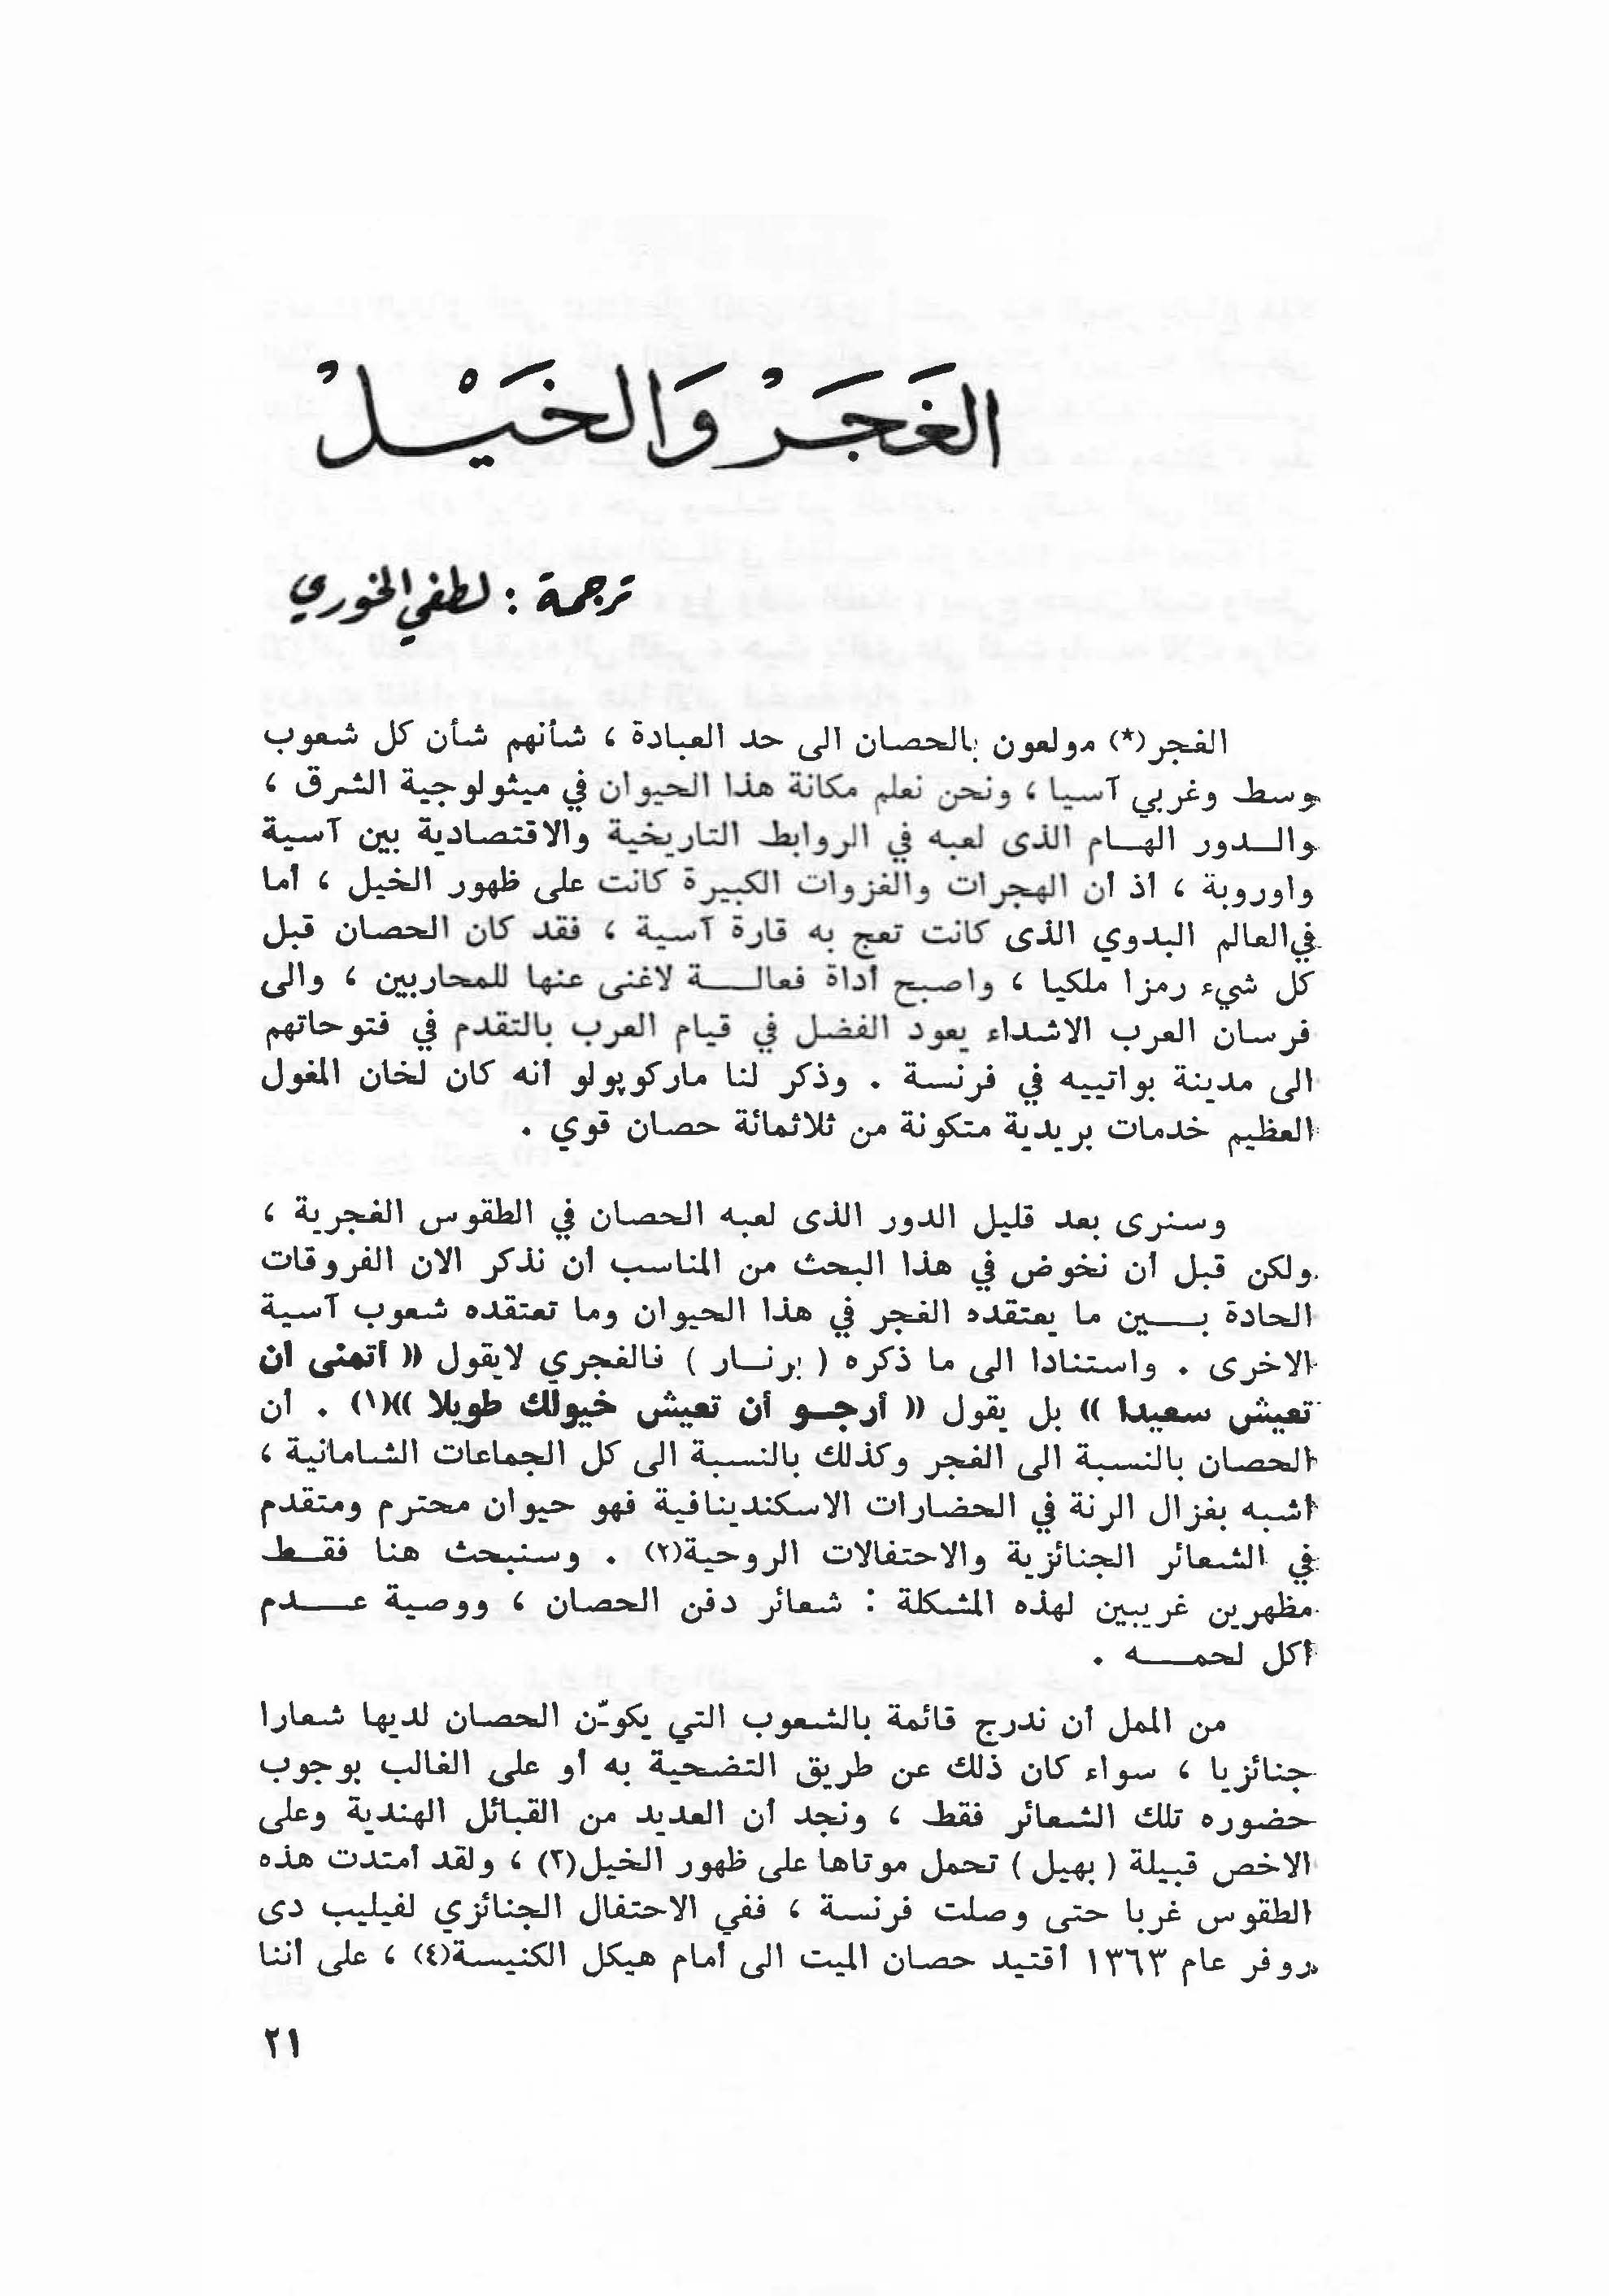 الغَجَرْ وَالخَيْلْ
ترجمة : لطفي الخوري
الغجر(*) مولعون بالحصان الى حد العبادة ، شأنهم شأن كل شعوب
وسط وغربي آسيا ، ونحن نعلم مكانة هذا الحيوان في ميثولوجية الشرق ،
والدور الهام الذى لعبه في الروابط التاريخية والاقتصادية بين آسية
واوروبة ، أذ أن الهجرات والغزوات الكبيرة كانت على ظهور الخيل ، أما
في العالم البدوي الذى كانت تعج به قارة آسية ، فقد كان الحصان قبل
كل شيء رمزا ملكيا ، واصبح أداة فعالة لاغنى عنها للمحاربين ، والى
فرسان العرب الاشداء يعود الفضل في قيام العرب بالتقدم في فتوحاتهم
الى مدينة بواتييه في فرنسة . وذكر لنا ماركوپولو أنه كان لخان المغول
العظيم خدمات بريدية متكونة من ثلاثمائة حصان قوي .
وسنرى بعد قليل الدور الذى لعبه الحصان في الطقوس الغجرية ،
ولكن قبل أن نخوض في هذا البحث من المناسب أن نذكر الان الفروقات
الحادة بين ما يعتقده الغجر في هذا الحيوان وما تعتقده شعوب آسية
الاخرى . واستنادا الى ما ذكره ( برنار ) فالغجري لايقول (( أتمنى أن
تعيش سعيدا )) بل يقول (( أرجو أن تعيش خيولك طويلا ))(١) . أن
الحصان بالنسبة الى الغجر وكذلك بالنسبة الى كل الجماعات الشامانية ،
أشبه بغزال الرنة في الحضارات الاسكندينافية فهو حيوان محترم ومتقدم
في الشعائر الجنائزية والاحتفالات الروحية(٢) . وسنبحث هنا فقط
مظهرين غريبين لهذه المشكلة : شعائر دفن الحصان ، ووصية عدم
أكل لحمه .
من الممل أن ندرج قائمة بالشعوب التي يكوّن الحصان لديها شعارا
جنائزيا ، سواء كان ذلك عن طريق التضحية به أو على الغالب بوجوب
حضوره تلك الشعائر فقط ، ونجد أن العديد من القبائل الهندية وعلى
الاخص قبيلة ( بهيل ) تحمل موتاها على ظهور الخيل(٣) ، ولقد أمتدت هذه
الطقوس غربا حتى وصلت فرنسة ، ففي الاحتفال الجنائزي لفيليب دى
روفر عام ١٣٦٣ أقتيد حصان الميت الى أمام هيكل الكنيسة(٤) ، على أننا
٢١